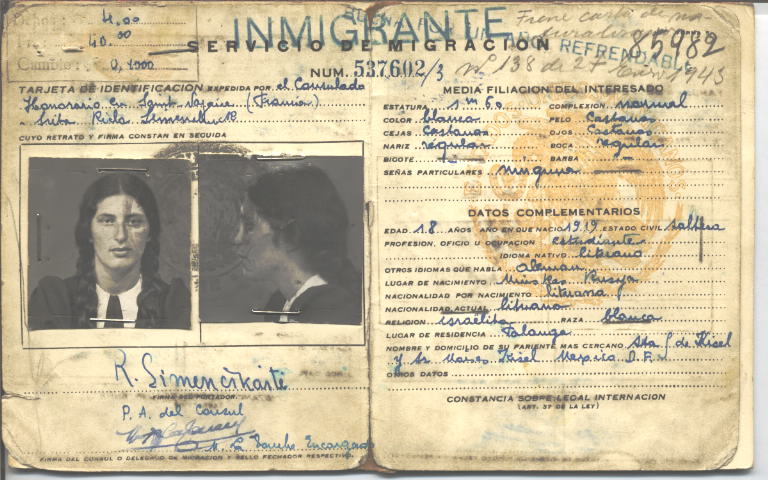 4.00
40.00
Cambio: 0,1000
INMIGRANTE
REFRENDABLE
SERVICIO DE MIGRACION
85982
NUM. 537602/3
Nº 138 de 27 Enero 1943
TARJETA DE IDENTIFICACION EXPEDIDA POR el Consulado
Honorario en Saint-Nazaire (Francia)
a Srita. Rida
CUYO RETRATO Y FIRMA CONSTAN EN SEGUIDA
R. Simencikaite
FIRMA DEL PORTADOR
P. A. del Consul
Encargado
FIRMA DEL CONSUL O DELEGADO DE MIGRACION Y SELLO FECHADOR RESPECTIVO
MEDIA FILIACION DEL INTERESADO
ESTATURA 1m 60 COMPLEXION normal
COLOR blanco PELO Castaños
CEJAS Castañas OJOS Castaños
NARIZ regular BOCA regular
BIGOTE — BARBA —
SEÑAS PARTICULARES ninguna
DATOS COMPLEMENTARIOS
EDAD 18 AÑOS AÑO EN QUE NACIO 1919 ESTADO CIVIL soltera
PROFESION, OFICIO U OCUPACION estudiante
IDIOMA NATIVO lituano
OTROS IDIOMAS QUE HABLA Aleman
LUGAR DE NACIMIENTO Rusya
NACIONALIDAD POR NACIMIENTO lituana
NACIONALIDAD ACTUAL lituana
RELIGION israelita RAZA blanca
LUGAR DE RESIDENCIA Palanga
NOMBRE Y DOMICILIO DE SU PARIENTE MAS CERCANO Sta. J. de Kisel
y Sr. Moises Kisel Mexico D.F.
OTROS DATOS
CONSTANCIA SOBRE LEGAL INTERNACION
(ART. 57 DE LA LEY)